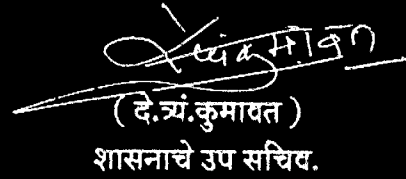 ( दे.त्र्यं.कुमावत )
शासनाचे उप सचिव.